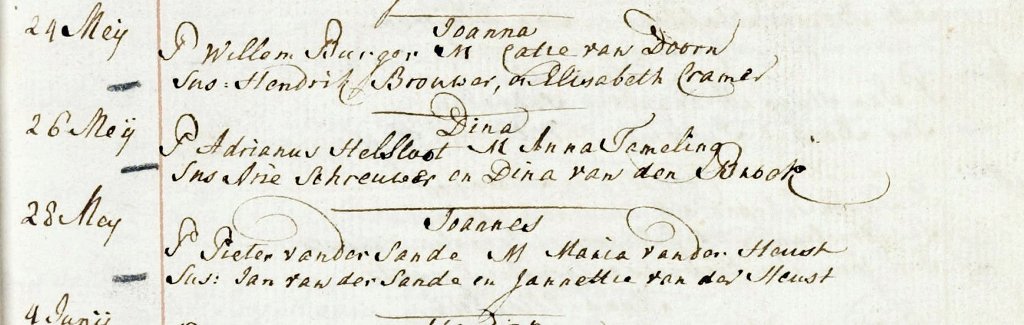 24 Meij Joanna
P Willem Burger M Catie van Doorn
Sus: Hendrik Brouwer, en Elisabeth Cramer
26 Meij Dina
P Adrianus Helsloot M Anna Tameling
Sus Arie Schreuwer en Dina van den Broek
28 Mey Joannes
P Pieter van der Sande M Maria van der Heust
Sus: Jan van der Sande en Jannettie van der Heust
4 Junij